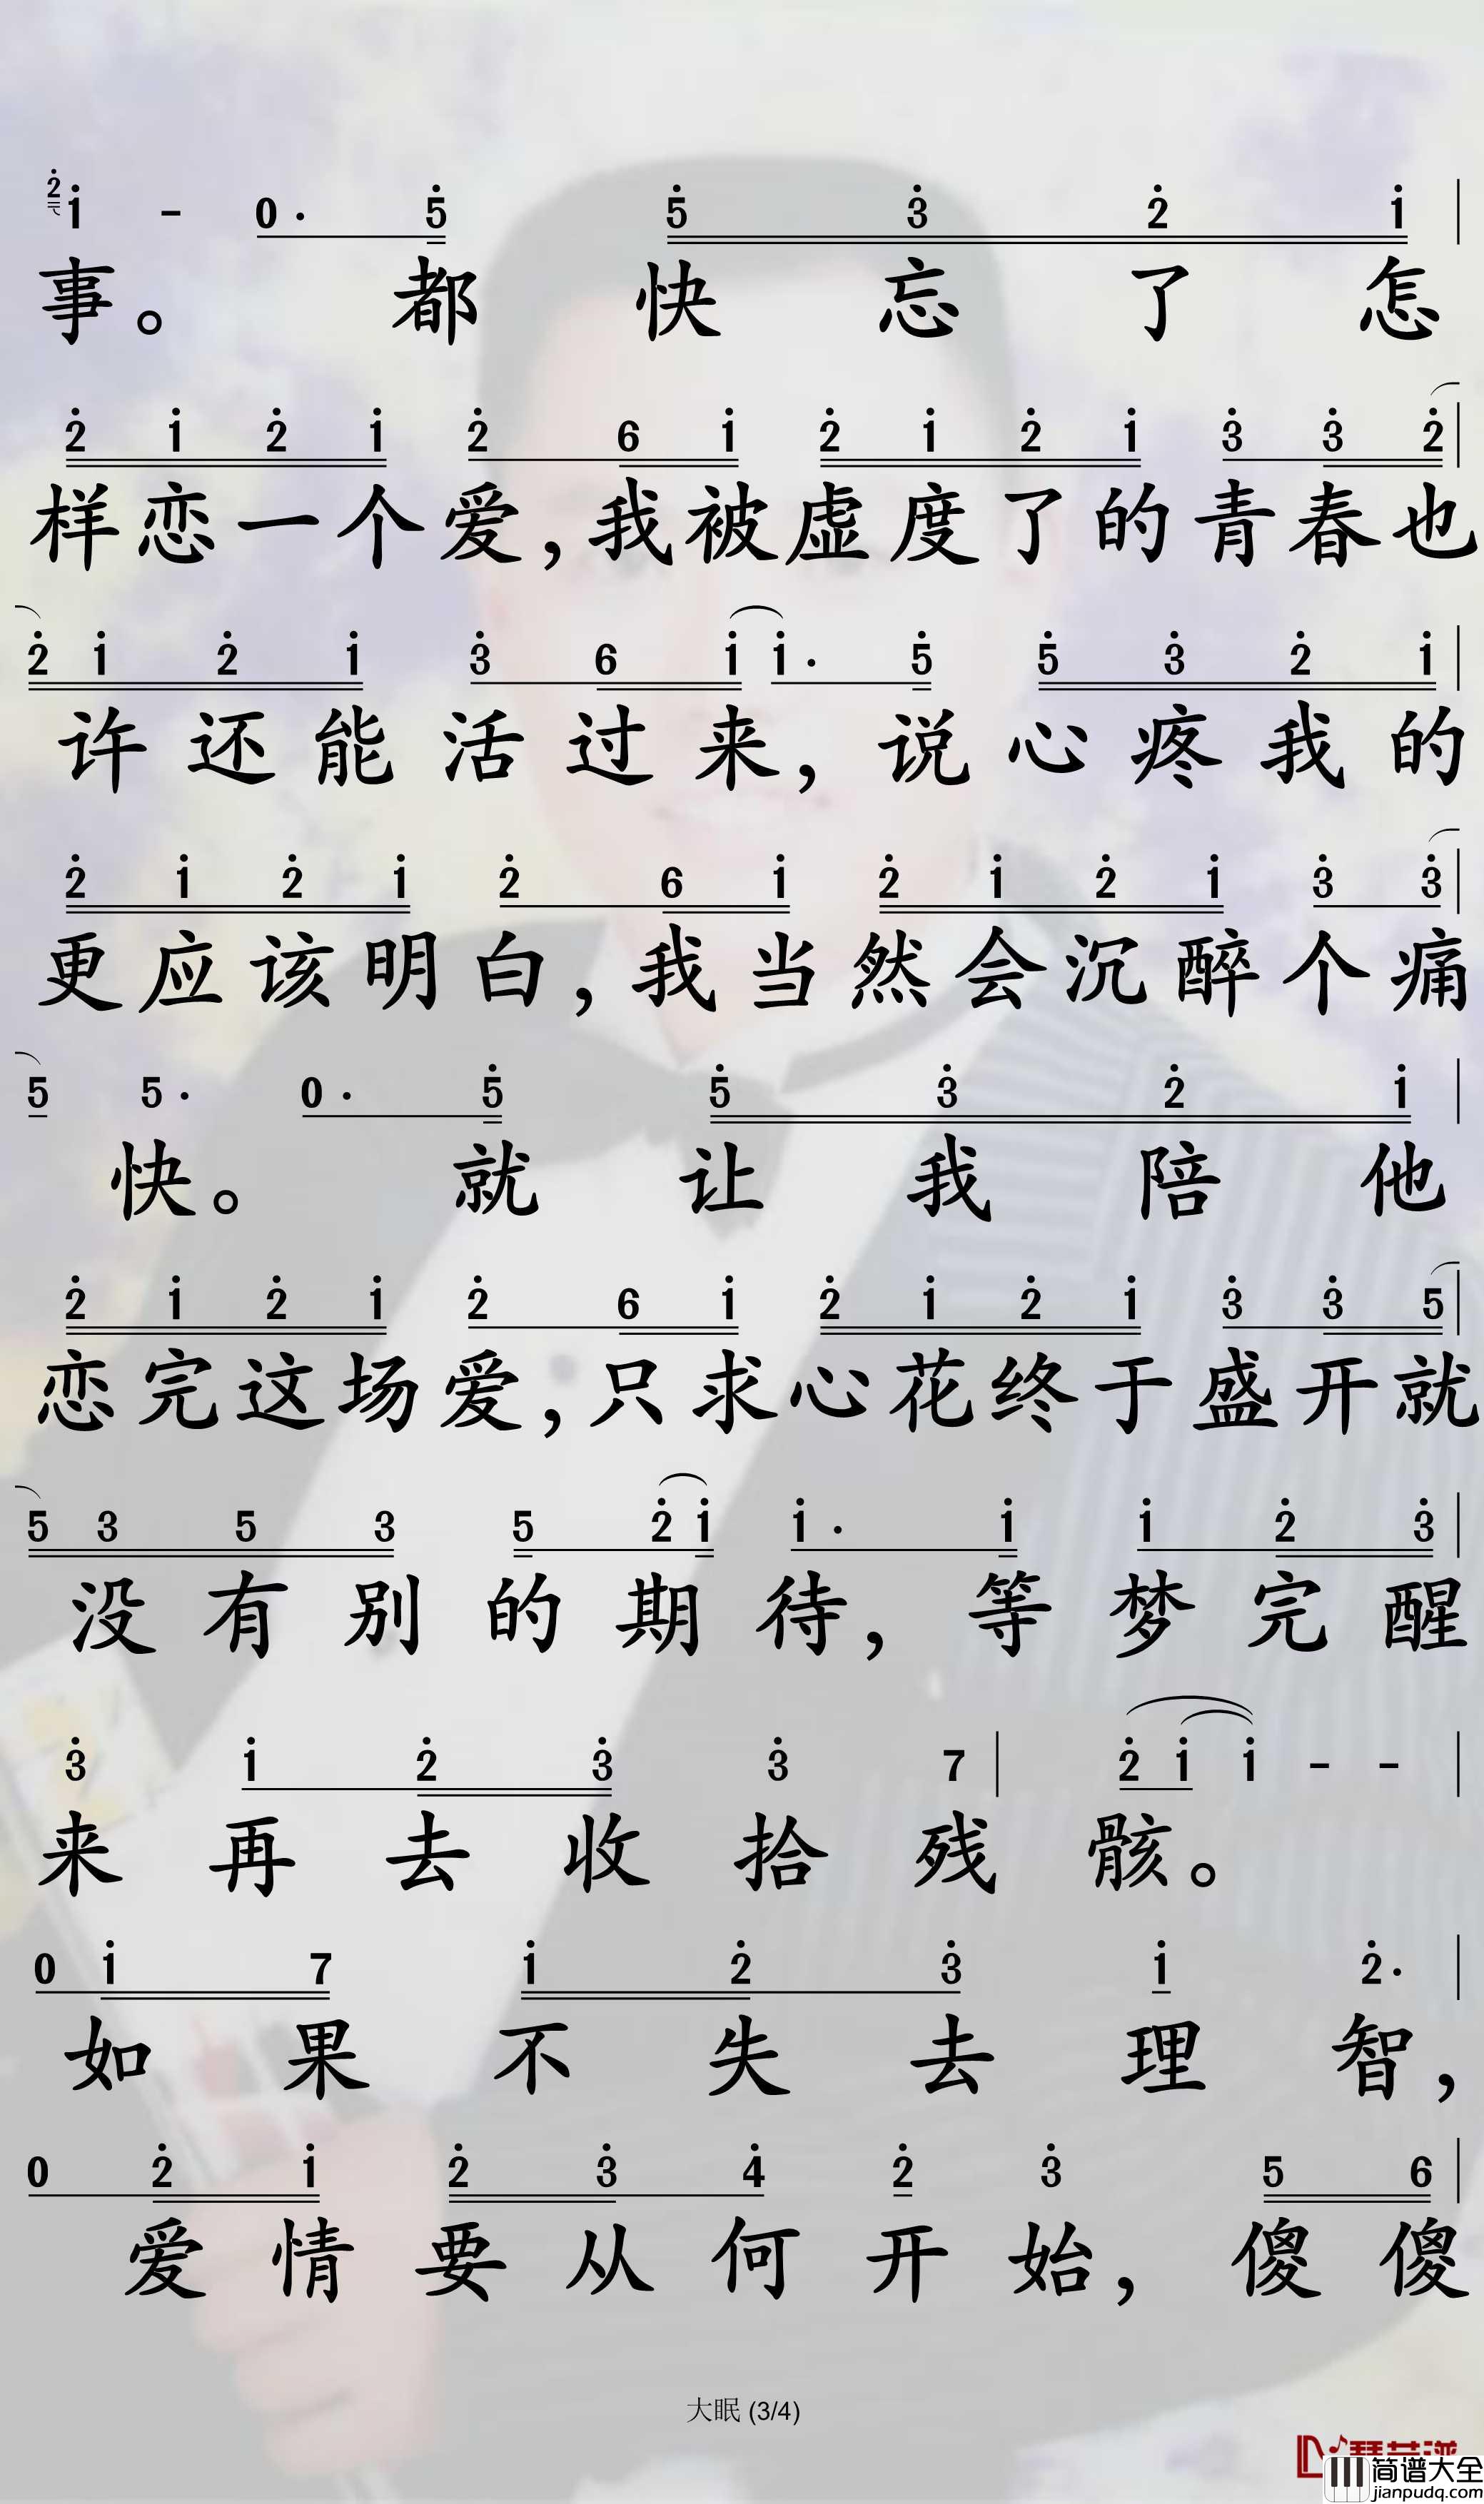 2 1 - 0. 5 5 3 2 1
事。 都 快 忘 了 怎
2 1 2 1 2 6 1 2 1 2 1 3 3 2
样恋一个爱,我被虚度了的青春也
2 1 2 1 3 6 1 1. 5 5 3 2 1
许还能活过来,说心疼我的
2 1 2 1 2 6 1 2 1 2 1 3 3
更应该明白,我当然会沉醉个痛
5 5. 0. 5 5 3 2 1
快。 就 让 我 陪 他
2 1 2 1 2 6 1 2 1 2 1 3 3 5
恋完这场爱,只求心花终于盛开就
5 3 5 3 5 2 1 1. 1 1 2 3
没有别的期待,等梦完醒
3 1 2 3 3 7 2 1 1 - -
来再去收拾残骸。
0 1 7 1 2 3 1 2.
如果不失去理智,
0 2 1 2 3 4 2 3 5 6
爱情要从何开始,傻傻
大眠 (3/4)
简谱大全
jianpudq.com